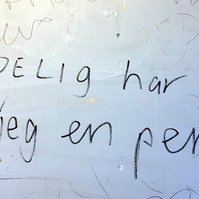 DELIG har
jeg en pen